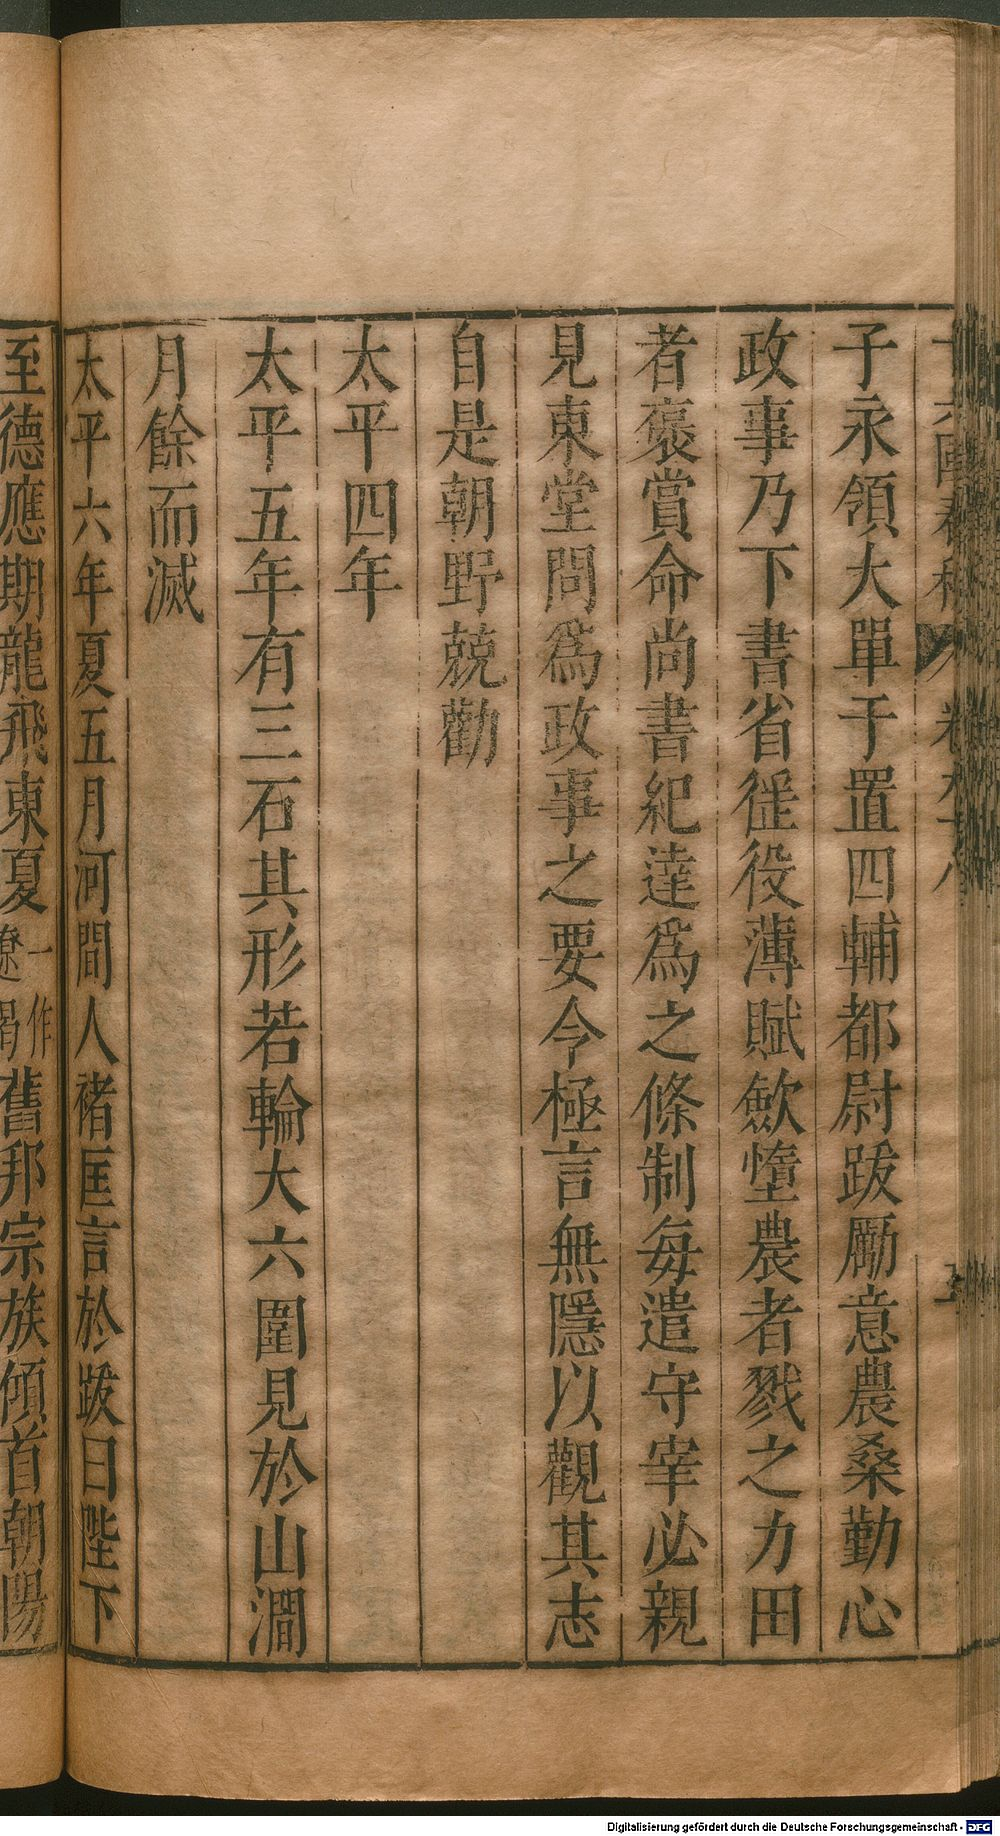 子永領大單于置四輔都尉跋勵意農桑勤心
政事乃下書省徭役薄賦歛墮農者戮之力田
者褒賞命尚書紀達爲之條制每遣守宰必親
見東堂問爲政事之要令極言無隱以觀其志
自是朝野兢勸
太平四年
太平五年有三石其形若輪大六圍見於山澗
月餘而滅
太平六年夏五月河間人褚匡言於跋曰陛下
至德應期龍飛東夏一作遼碣舊邦宗族傾首朝陽
Digitalisierung gefördert durch die Deutsche Forschungsgemeinschaft - DFG